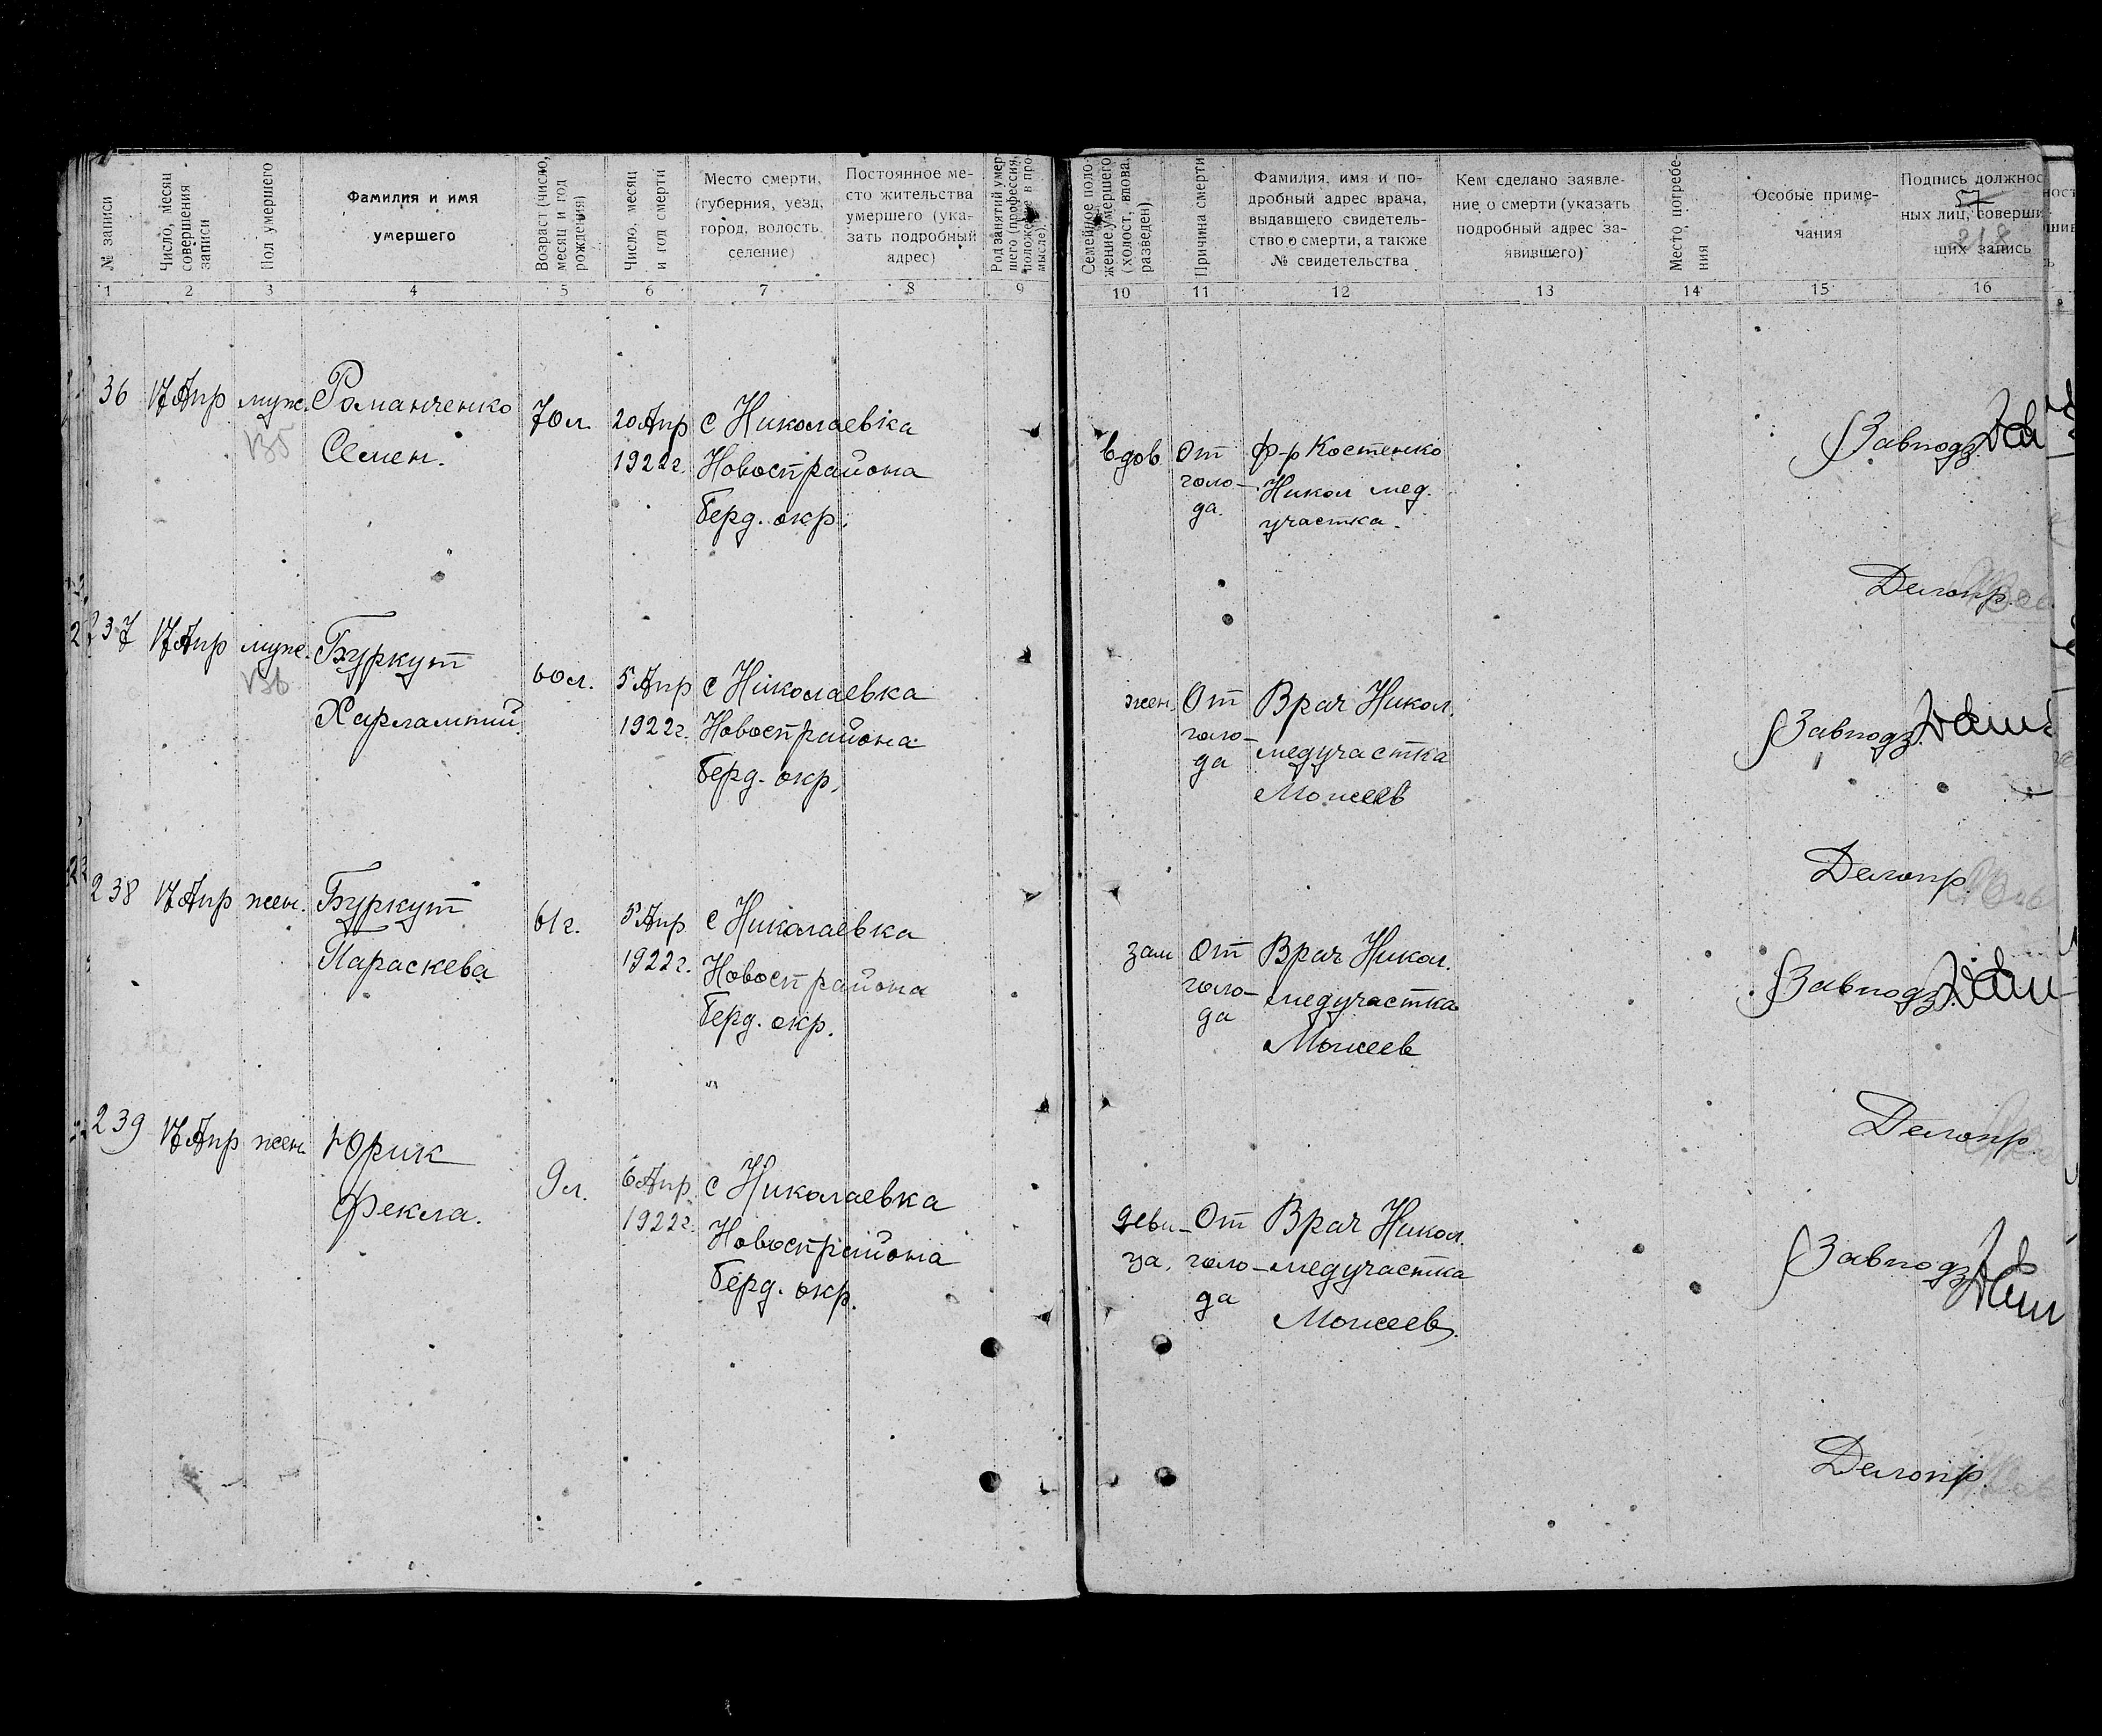 № записи
Число, месяц
совершения
записи
Пол умершего
Фамилия и имя
умершего
Возраст (число,
месяц и год
рождения)
Число, месяц
и год смерти
Место смерти,
(губерния, уезд,
город, волость,
селение)
Постоянное ме-
сто жительства
умершего (ука-
зать подробный
адрес)
Род занятий умер-
шего (профессия,
положение в про-
мысле).
Семейное поло-
жение умершего
(холост, вдова,
разведен)
Причина смерти
Фамилия, имя и по-
дробный адрес врача,
выдавшего свидетель-
ство о смерти, а также
№ свидетельства
Кем сделано заявле-
ние о смерти (указать
подробный адрес за-
явившего)
Место погребе-
ния
Особые приме-
чания
Подпись должнос-
57
ных лиц, соверши
218
ших запись
1 2 3 4 5 6 7 8 9 10 11 12 13 14 15 16
36 17 Апр муж. Романченко
135
Семен.
70 л. 20 Апр с Николаевка
1922 г. Новоспрайона
Берд. окр.
вдов. От ф-р Костенко
голо- Никол мед.
да. участка.
Завподз.
Делопр.
237 17 Апр муж. Буркут
136
Харлампий.
60 л. 5 Апр с Николаевка
1922 г. Новоспрайона
Берд. окр.
жен. От Врач Никол.
голо- медучастка
да Моисеев
Завподз.
Делопр.
238 17 Апр жен. Буркут
Параскева
61 г. 5 Апр с Николаевка
1922 г. Новоспрайона
Берд. окр.
зам От Врач Никол.
голо- медучастка
да Моисеев
Завподз.
Делопр.
239 17 Апр жен. Юрик
Фекла.
9 л. 6 Апр. с Николаевка
1922 г. Новоспрайона
Берд. окр.
деви- От Врач Никол.
ца, голо- медучастка
да Моисеев.
Завподз
Делопр.